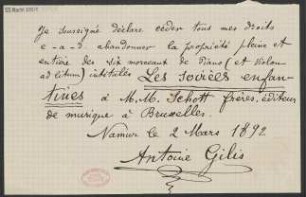 Je soussigné déclare céder tous mes droits
c-a-d. abandonner la propriété pleine et
entière des six morceaux de Piano (et violon
ad libitum) intitulés Les soirées enfan-
tines à M.M. Schott frères, éditeurs
de musique à Bruxelles.
Namur le 2 Mars 1892
Antoine Gilis